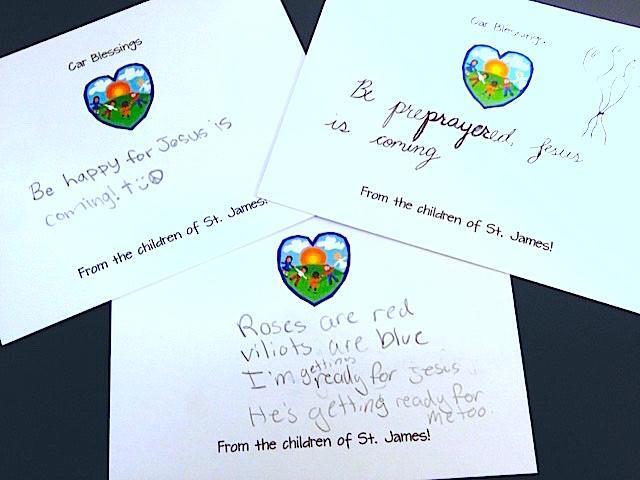 Car Blessings
Be happy for Jesus is
coming! ✝☺☮
From the children of St. James!
Car Blessings
Be preprayered, Jesus
is coming
From the children of St. James!
Roses are red
viliots are blue
I'm gettings ready for Jesus
He's getting ready for
me too.
From the children of St. James!